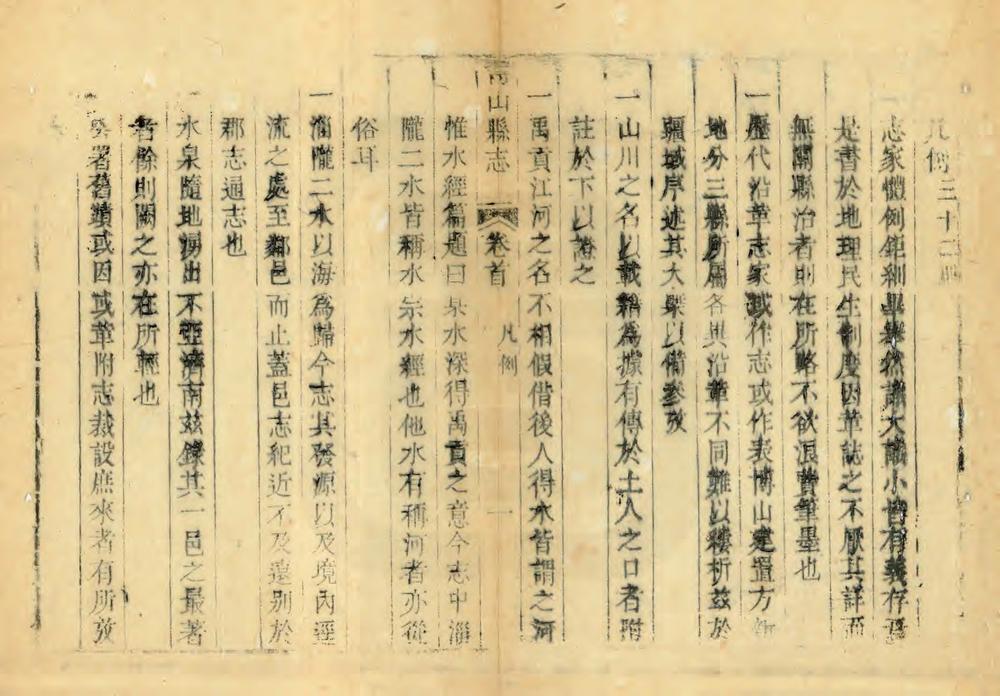 凡例三十二則
一志家體例鉅細畢舉然識大識小皆有義存焉
是書於地理民生制度因革誌之不厭其詳而
無關縣治者則在所略不欲浪費筆墨也
一歷代沿革志家或作志或作表博山建置方新
地分三縣所屬各異沿革不同難以縷析茲於
疆域序述其大槩以備參攷
一山川之名以載籍為據有傳於土人之口者附
註於下以證之
一禹貢江河之名不相假借後人得水皆謂之河
山縣志 卷首 凡例 一
惟水經篇題曰某水深得禹貢之意今志中淄
隴二水皆稱水宗水經也他水有稱河者亦從
俗耳
一淄隴二水以海為歸今志其發源以及境內逕
流之處至鄰邑而止蓋邑志紀近不及遠別於
郡志通志也
水泉隨地湧出不亞濟南茲錄其一邑之最著
者餘則闕之亦在所輕也
著舊蹟或因或革附志裁設庶來者有所攷